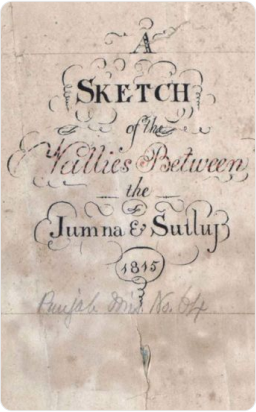 A
SKETCH
of the
Vallies Between
the
Jumna & Sutluj
1815
Punjab No. 64